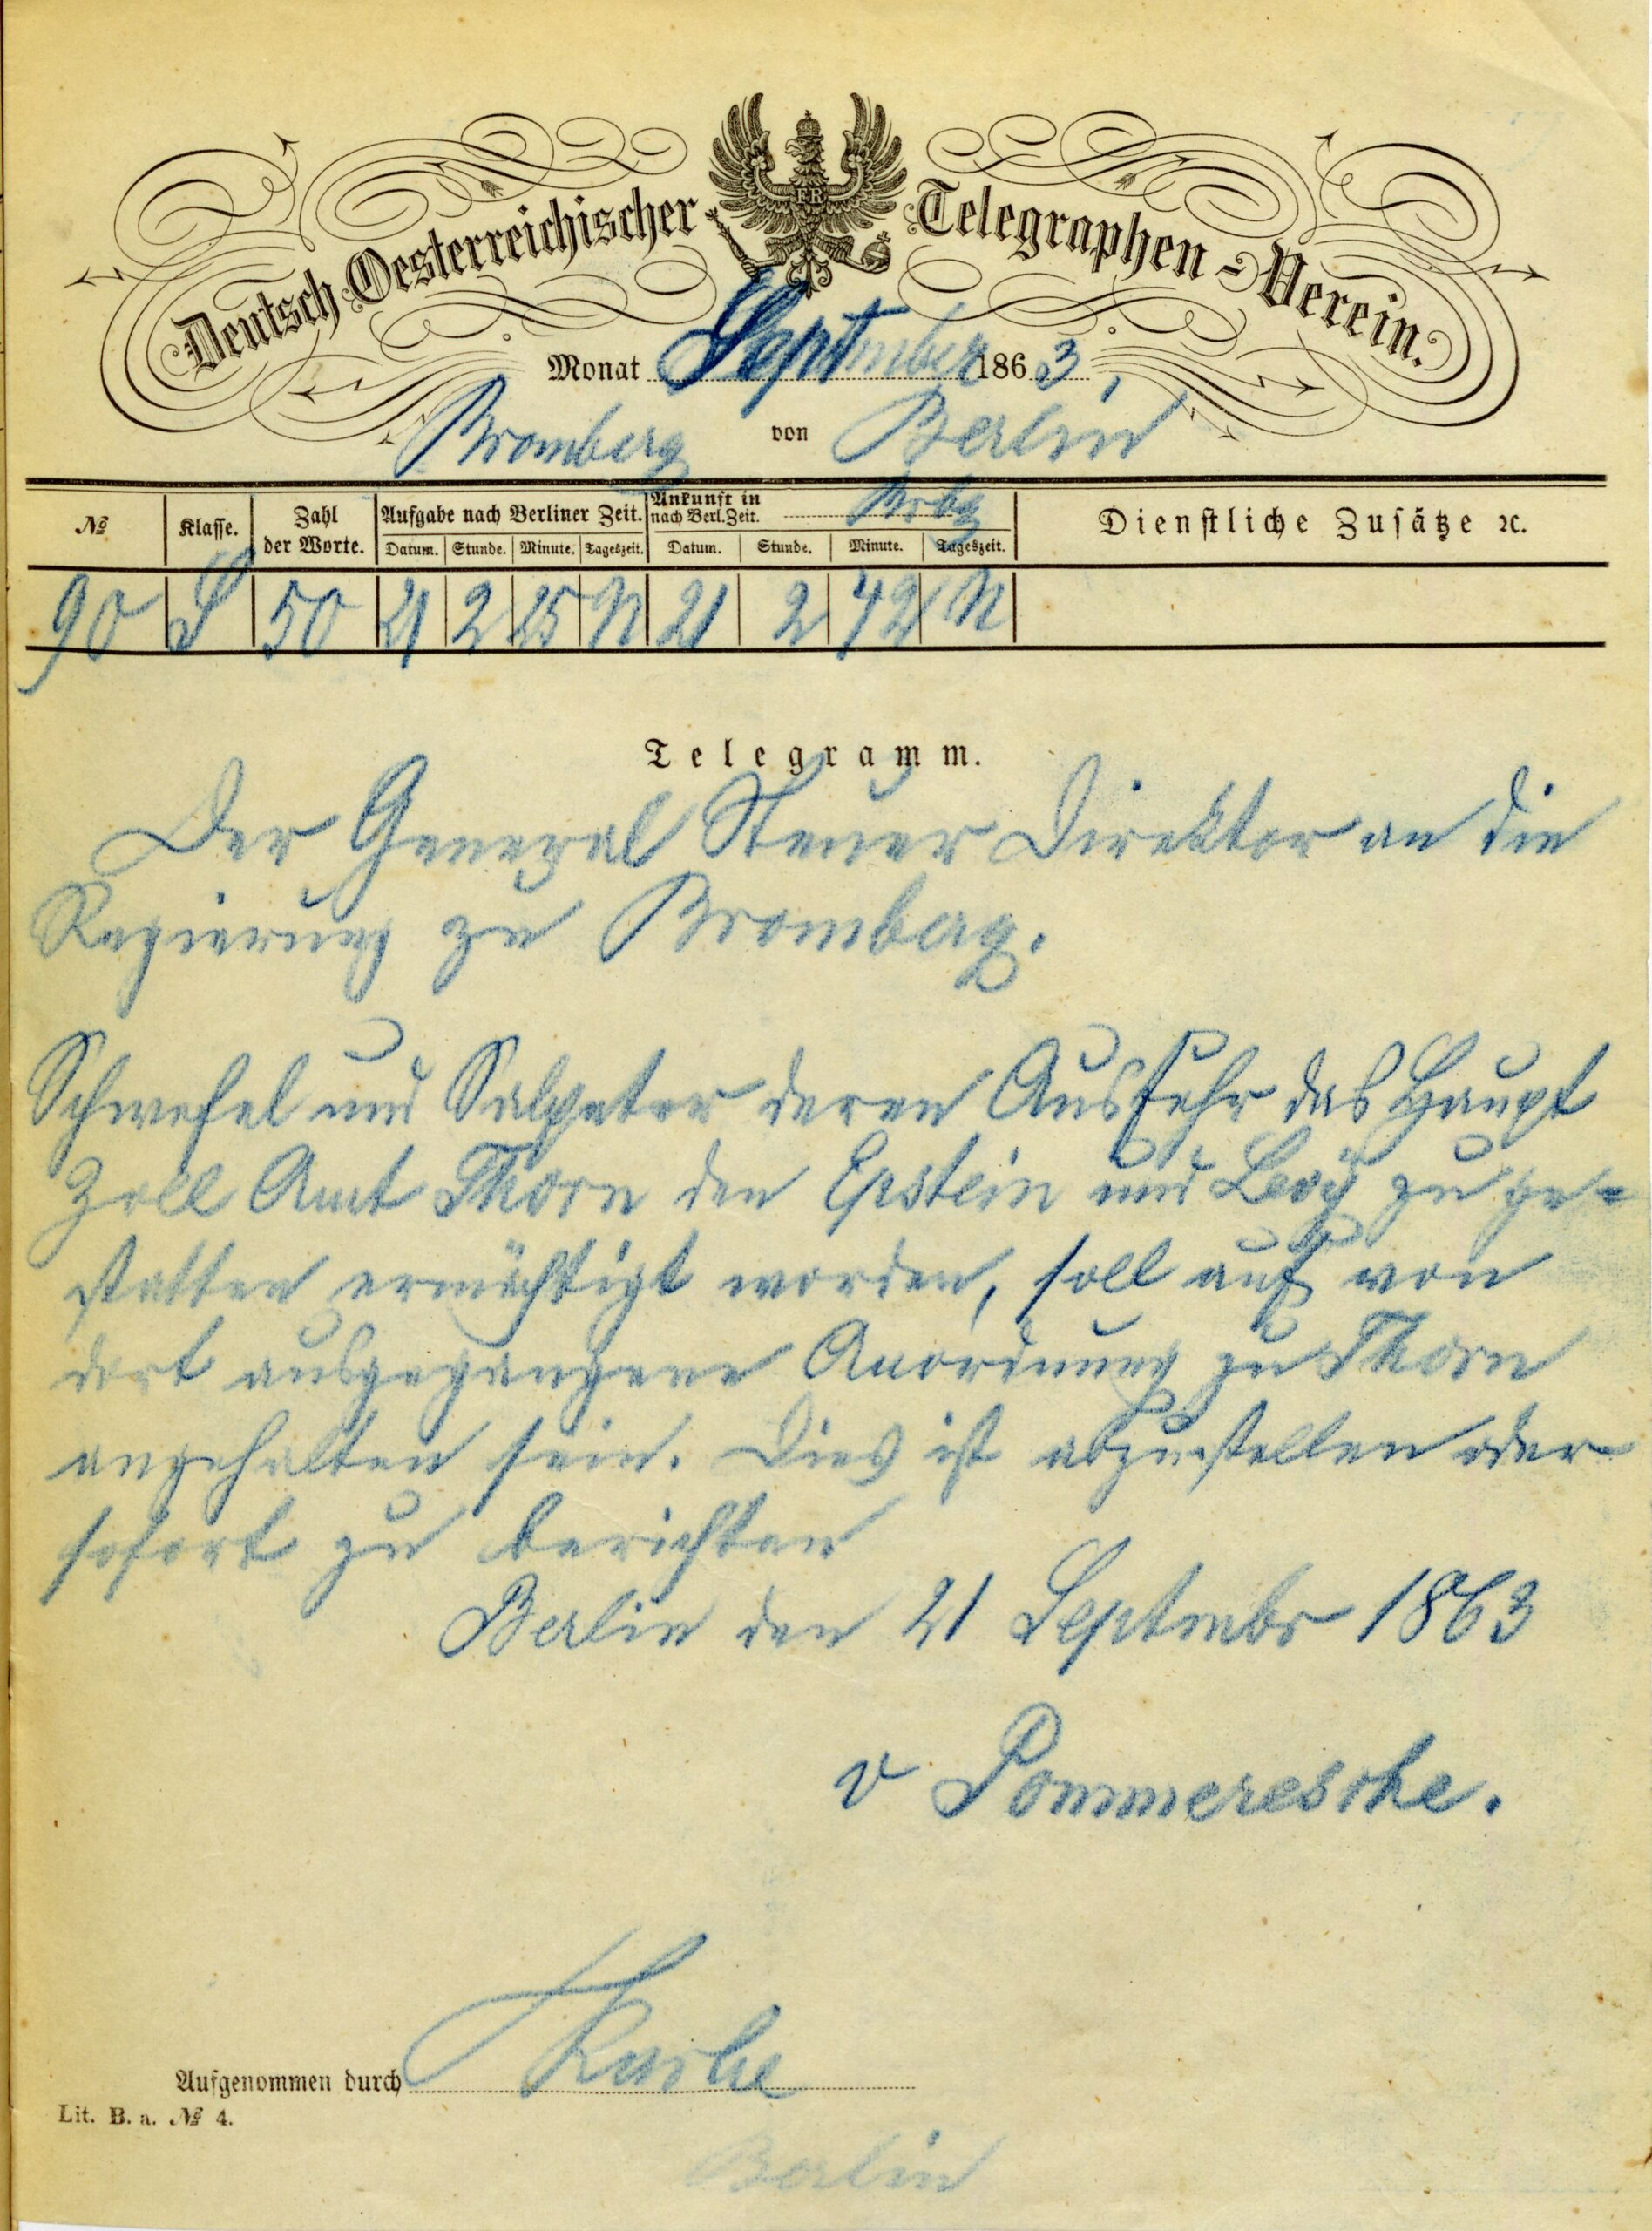 Deutsch Oesterreichischer Telegraphen-Verein.
FR
Monat September 1863,
Bromberg von Berlin
№ Klasse. Zahl der Worte. Aufgabe nach Berliner Zeit. Ankunft in Brbg nach Berl. Zeit. Dienstliche Zusätze ꝛc.
Datum. Stunde. Minute. Tageszeit. Datum. Stunde. Minute. Tageszeit.
90 S 50 21 2 25 N 21 2 42 N
Telegramm.
Der General Steuer Direktor an die
Regierung zu Bromberg.
Schwefel und Salpeter deren Ausfuhr das Haupt
Zoll Amt Thorn den Epstein und Levÿ zu ge=
statten ermächtigt worden, soll auf von
dort ausgegangene Anordnung zu Thorn
angehalten sein. Dies ist abzustellen oder
sofort zu berichten
Berlin den 21 Septmbr 1863
v Pommeresche.
Aufgenommen durch
Lit. B. a. № 4.
Berlin